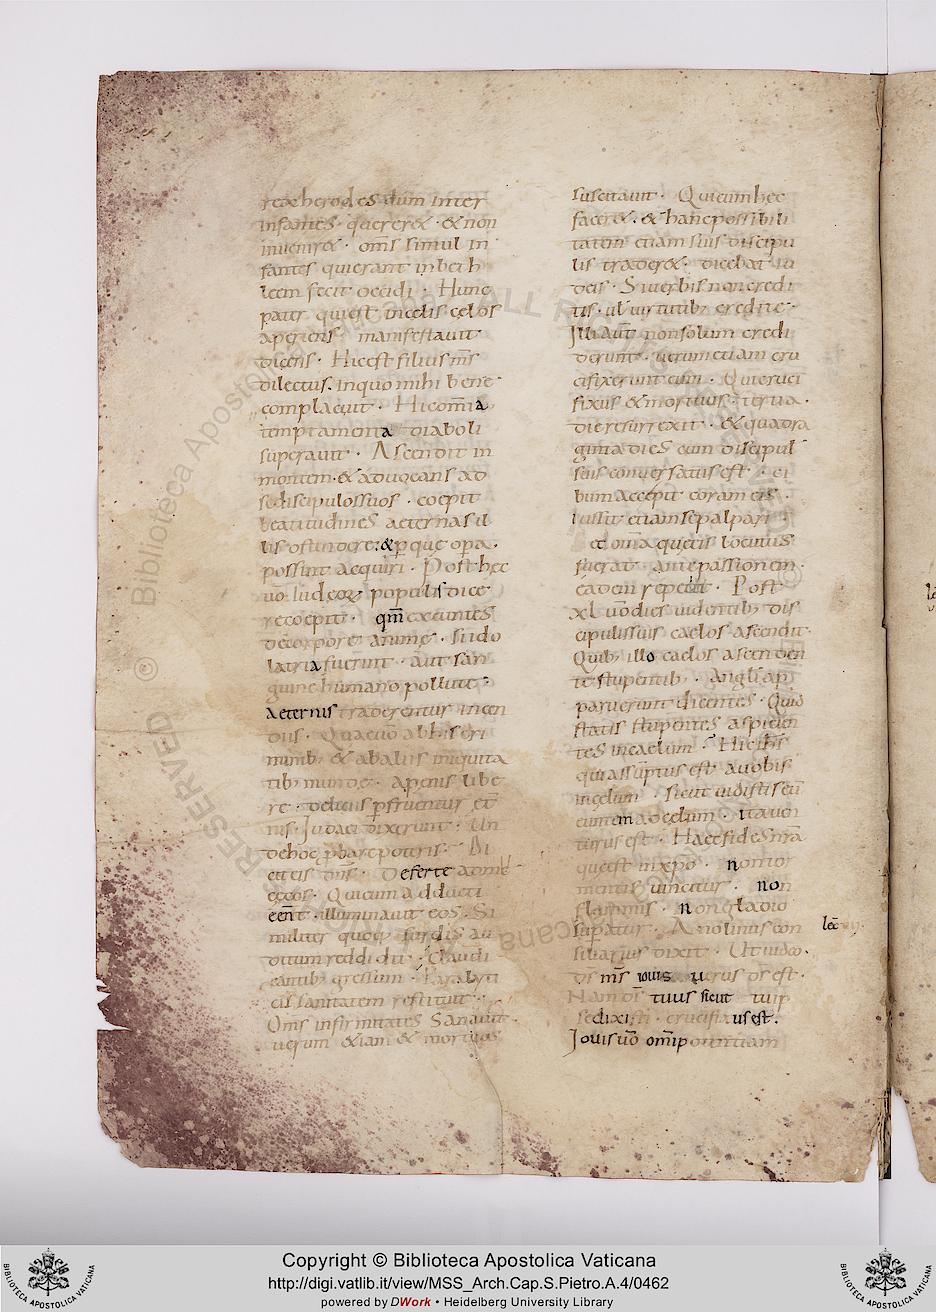 rex herodes dum inter
infantes quereret & non
inveniret oms simul in
fantes qui erant in beth
leem fecit occidi · Hunc
pater qui est in celis celos
aperiens manifestavit
dicens · Hic est filius ms
dilectus in quo mihi bene
complacuit · Hic omia
temptamenta diaboli
superavit · Ascendit in
montem & advocans ad
se discipulos suos · coepit
beatitudines aeternas il
lis ostendere & p que opa
possint aequiri · Post hec
populis dice
re coepit · qm exeuntes
de corpore anime · si ido
latria fuerint aut san
guine humano pollute
aeternis traderentur incen
diis ·
& ab aliis iniquita
tib munde
re
nis · Iudaei dixerunt · Un
de hoc pbare poteris · Di
cit eis Deferte ad me
cecos · Qui cum adducti
eent · illuminavit eos · Si
militer quoq surdis au
ditum reddidit · Claudi
cantib gressum · Paralyti
cis sanitatem restituit
Oms infirmitates sanavit
verum etiam & mortuos
suscitavit · Qui cum hec
faceret & hanc possibili
tatem etiam suis discipu
lis traderet · dicebat iu
deis · Si verbis non credi
tis · vl virtutib credite ·
Illi aut non solum credi
derunt · verum etiam cru
cifixerunt eum · Qui cruci
fixus & mortuus · tertia
die resurrexit · & quadra
ginta dies cum discipul
suis conversatus est · ci
bum accepit coram eis ·
iussit etiam se palpari
& omia que eis locutus
fuerat · ante passionem
eadem repetiit · Post
XL vo dies videntib dis
cipulis suis caelos ascendit
Quib illo caelos ascenden
te stupentib · angli ap
paruerunt dicentes · Quid
statis stupentes aspicien
tes in caelum · Hic ihs
qui assuptus est a vobis
in celum · sicut vidistis eu
euntem ad celum · Ita ven
turus est · Haec fides nra
que est in xpo non tor
mentis vincitur · non
flammis · non gladio
supatur · Anolinus con
siliarius dixit · Ut video
ds ms iovis verus ds est ·
Nam ds tuus sicut tu ip
se dixisti · crucifixus est ·
Iovis vo omipotentiam
lec
Copyright © Biblioteca Apostolica Vaticana
http://digi.vatlib.it/view/MSS_Arch.Cap.S.Pietro.A.4/0462
powered by DWork • Heidelberg University Library